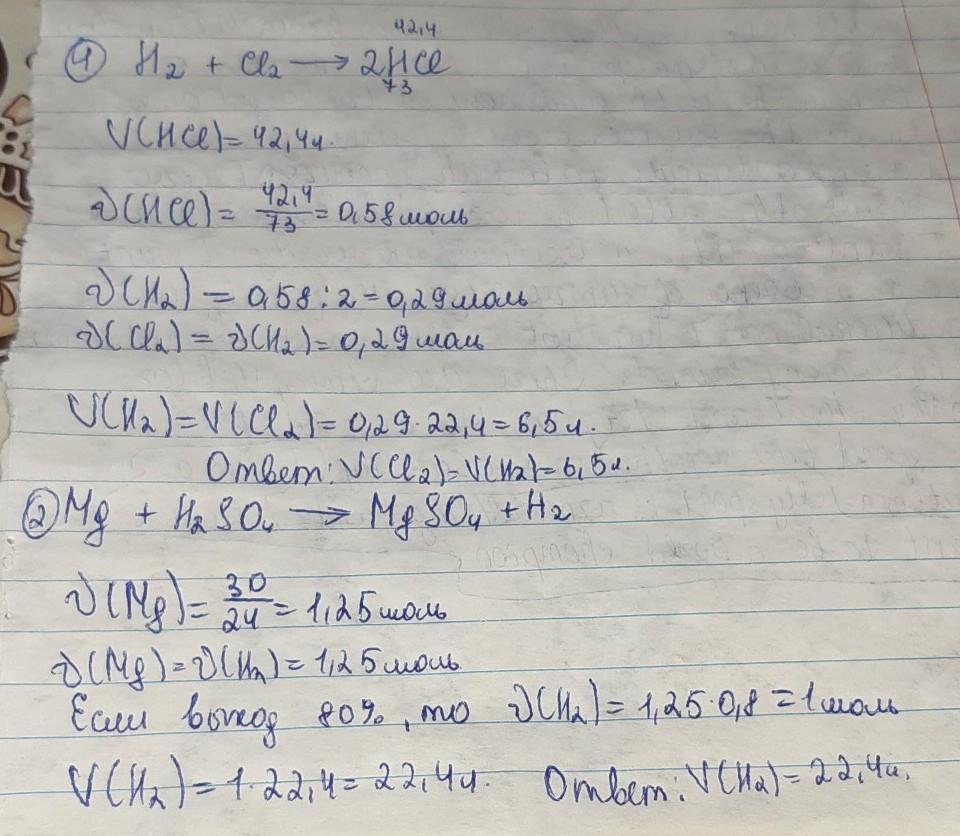 42,4
① H₂ + Cl₂ → 2HCl
73
V(HCl) = 42,4л.
ν(HCl) = 42,4/73 = 0,58моль
ν(H₂) = 0,58 : 2 = 0,29моль
ν(Cl₂) = ν(H₂) = 0,29моль
V(H₂) = V(Cl₂) = 0,29 · 22,4 = 6,5л.
Ответ: V(Cl₂) = V(H₂) = 6,5л.
② Mg + H₂SO₄ → MgSO₄ + H₂
ν(Mg) = 30/24 = 1,25моль
ν(Mg) = ν(H₂) = 1,25моль
Если выход 80%, то ν(H₂) = 1,25 · 0,8 = 1моль
V(H₂) = 1 · 22,4 = 22,4л. Ответ: V(H₂) = 22,4л.